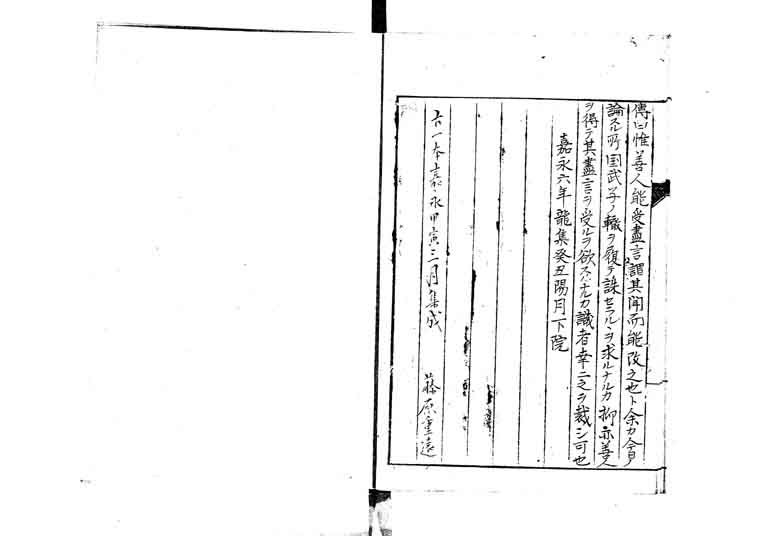 傳ニ惟善人能受盡言謂其聞而能改之也ト余カ今日
論スル所国武子ノ轍ヲ履テ誅セラルヽヲ求ルナルカ抑亦善人
ヲ得テ其盡言ヲ受ルヲ欲スルナルカ識者幸ニ之ヲ裁シ可也
嘉永六年龍集癸丑陽月下院
右一本嘉永甲寅三月集成
藤原重遠